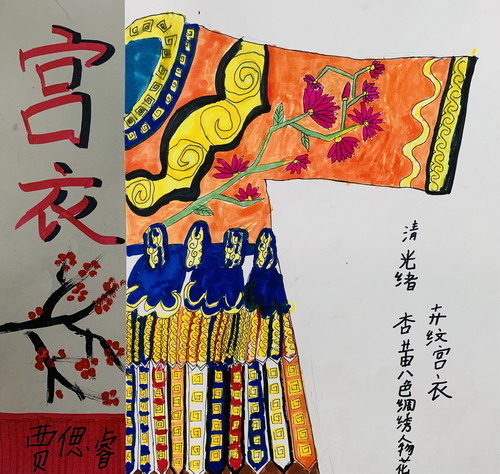 宫衣
贾偲睿
清光绪
杏黄八色绸绣人物花
卉纹宫衣